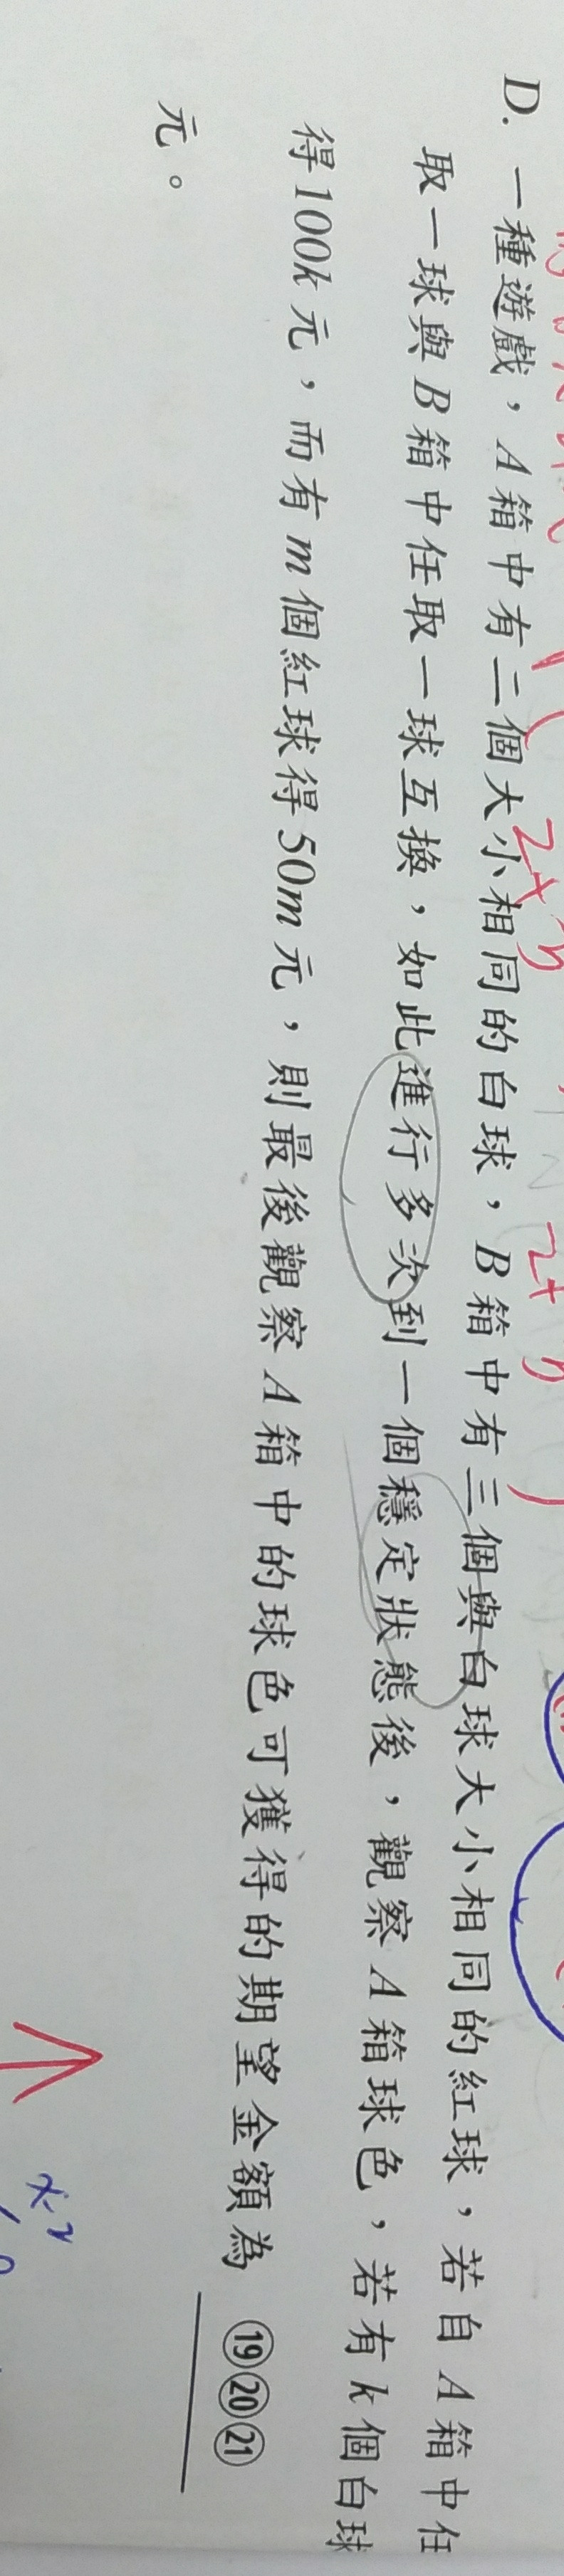 D. 一種遊戲，A箱中有二個大小相同的白球，B箱中有三個與白球大小相同的紅球，若自A箱中任
取一球與B箱中任取一球互換，如此進行多次到一個穩定狀態後，觀察A箱球色，若有k個白球
得100k元，而有m個紅球得50m元，則最後觀察A箱中的球色可獲得的期望金額為 ⑲⑳㉑
元。